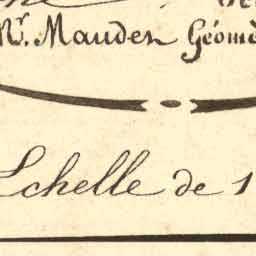 Mr. Mauden Géomè
Echelle de 1